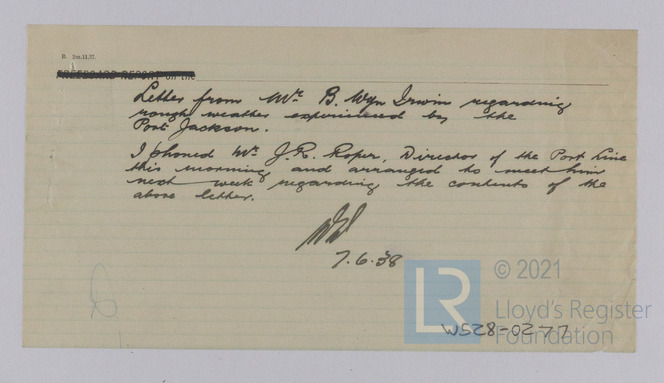 FREEBOARD REPORT on the
Letter from Mr. B. Wyn Irwin regarding
rough weather experienced by the
Port Jackson.
I phoned Mr. J.R. Roper, Director of the Port Line
this morning and arranged to meet him
next week regarding the contents of the
above letter.
7.6.38
© 2021
LR
Lloyd's Register
Foundation
W528-0277